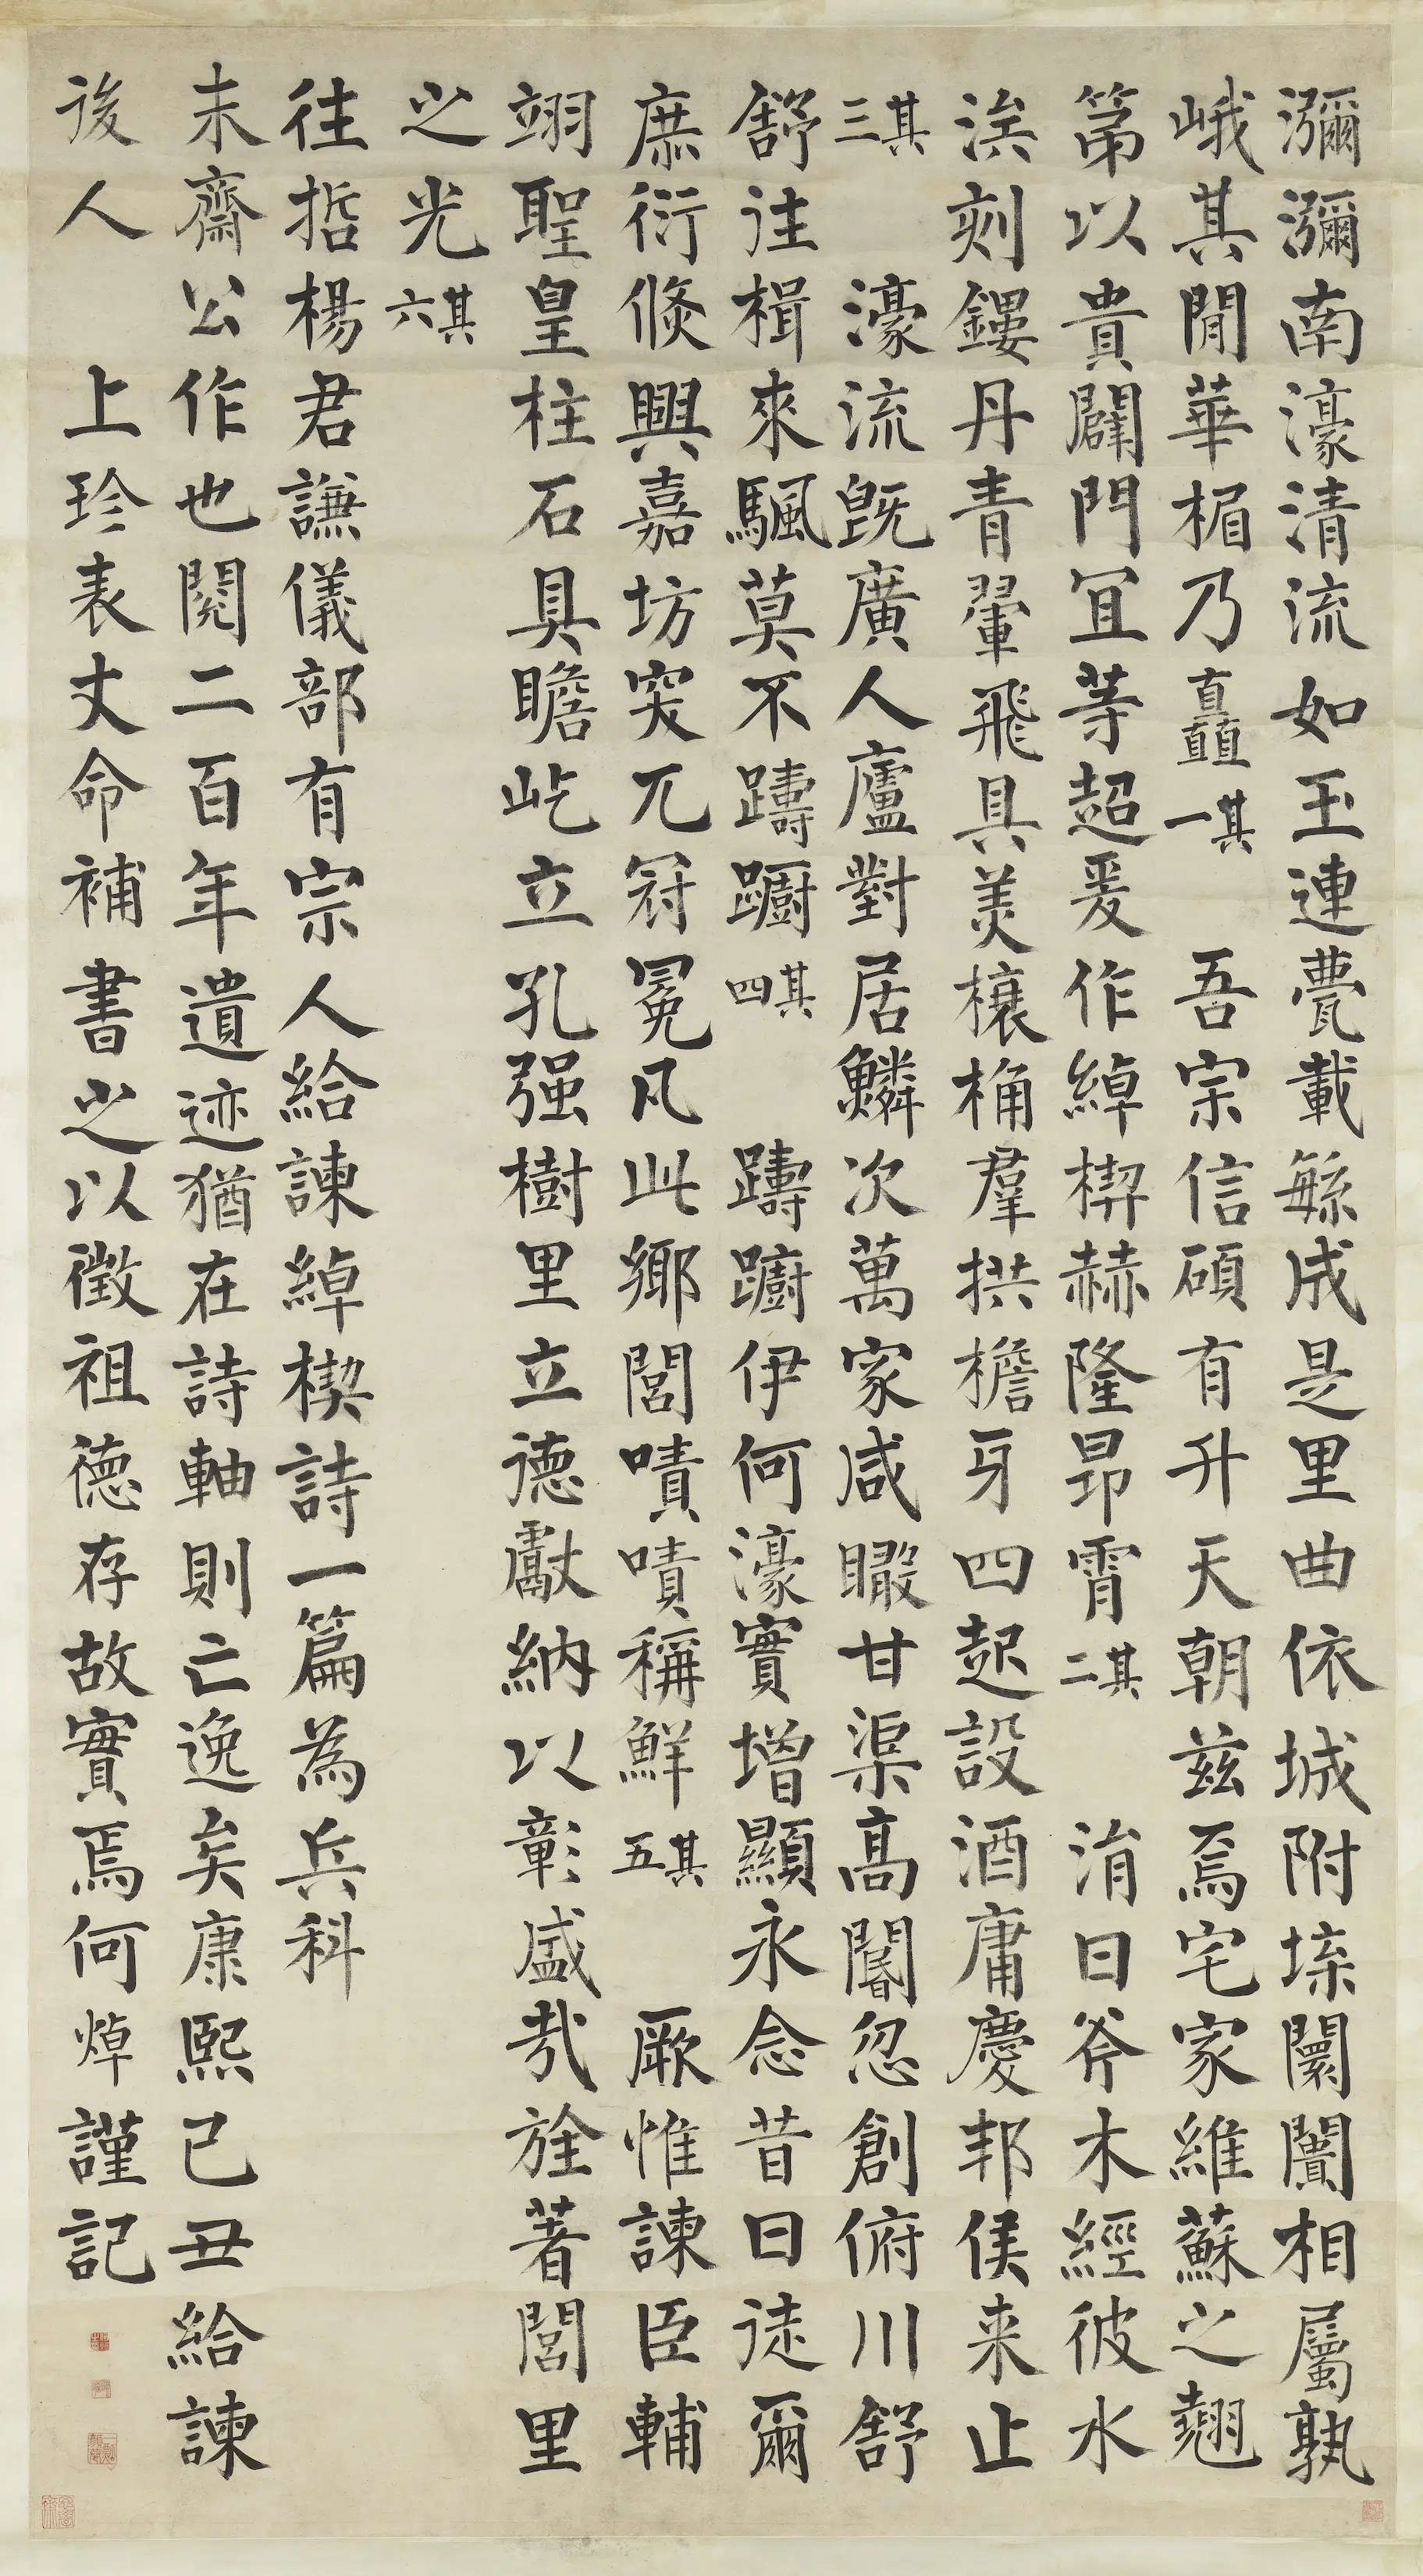 瀰瀰南濠清流如玉連甍載繇成是里曲依城附埰闤闠相屬孰
峨其閈華楣乃矗其一吾宗信碩有升天朝茲焉宅家維蘇之翹
第以貴闢門宜等超爰作綽楔赫隆昂霄其二涓日斧木經彼水
涘刻鏤丹青翬飛具美欀桷羣拱檐牙四起設酒庸慶邦侯来止
其三濠流旣廣人廬對居鱗次萬家咸瞰甘渠高闔忽創俯川舒
舒往楫來颿莫不躊躕其四躊躕伊何濠實增顯永念昔日徒爾
庶衍倐興嘉坊突兀冠冕凡此鄉閭嘖嘖稱鮮其五厥惟諫臣輔
翊聖皇柱石具瞻屹立孔强樹里立德獻納以彰盛哉旌著閭里
之光其六
往哲楊君謙儀部有宗人給諫綽楔詩一篇為兵科
未齋公作也閱二百年遺迹猶在詩軸則亡逸矣康熙己丑給諫
後人上珍表丈命補書之以徵祖德存故實焉何焯謹記